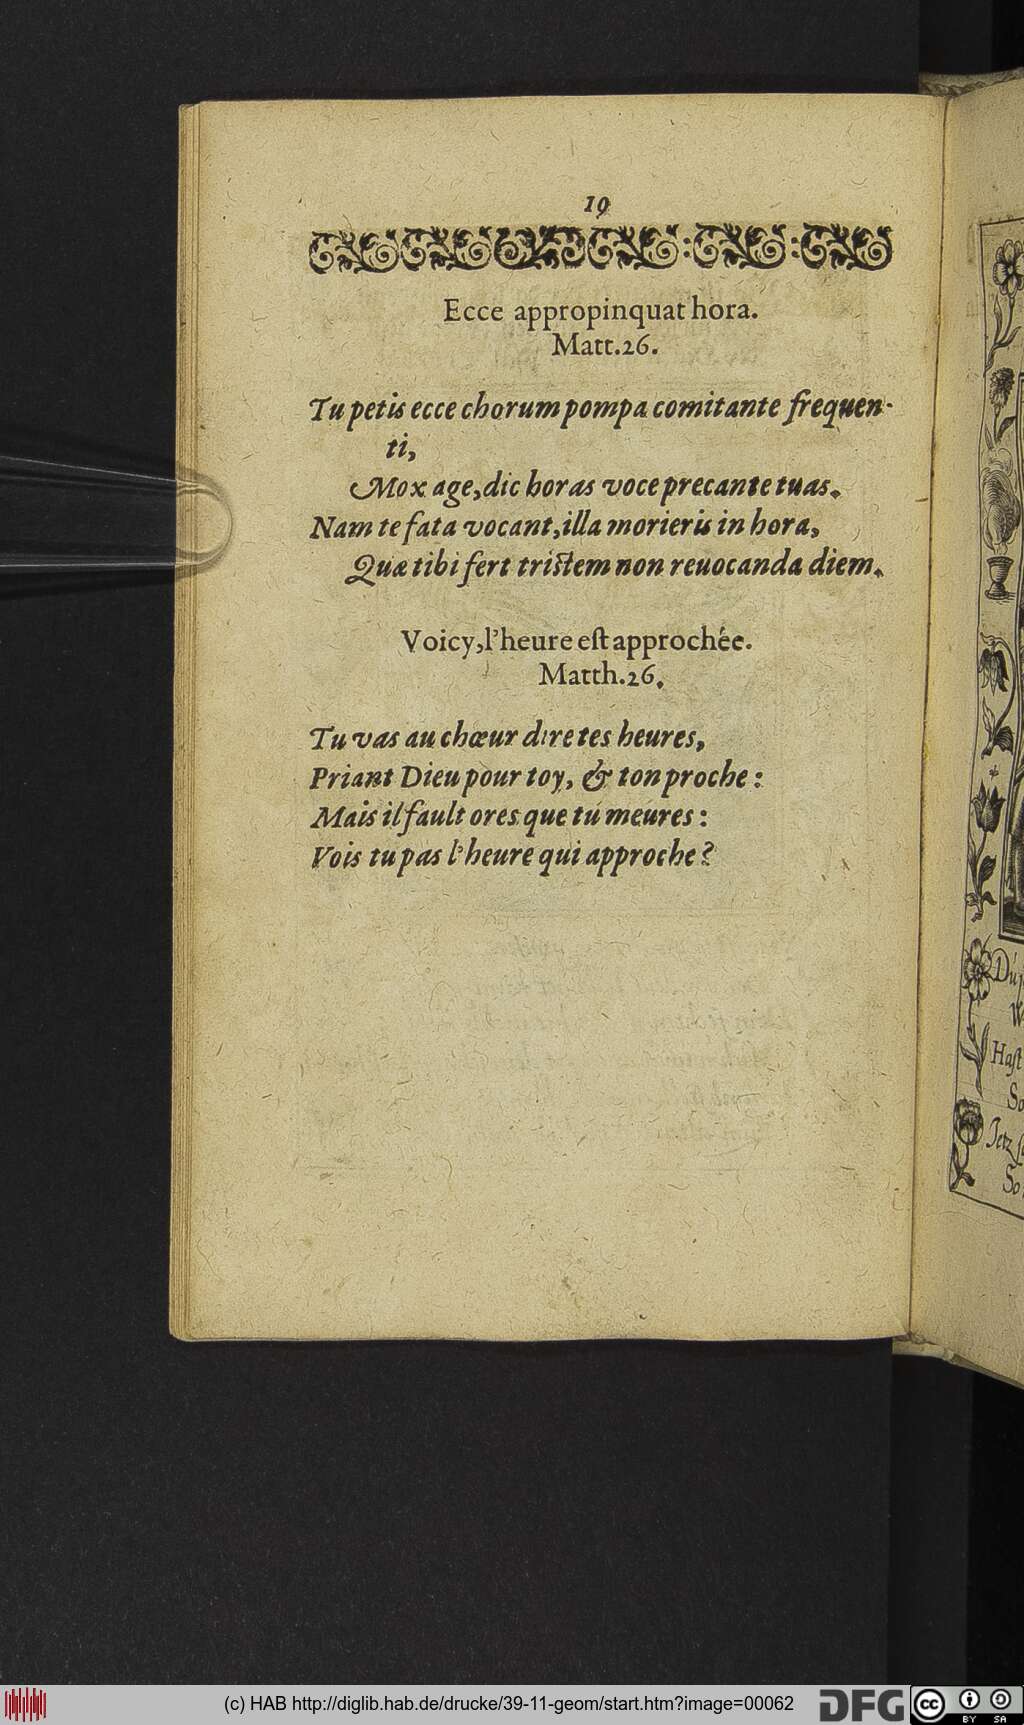 19
Ecce appropinquat hora.
Matt.26.
Tu petis ecce chorum pompa comitante frequen-
ti,
Mox age, dic horas voce precante tuas.
Nam te fata vocant, illa morieris in hora,
Quæ tibi fert tristem non reuocanda diem.
Voicy, l'heure eſt approchée.
Matth.26.
Tu vas au chœur dire tes heures,
Priant Dieu pour toy, & ton proche:
Mais il fault ores que tu meures:
Vois tu pas l'heure qui approche?
Haſt
So
Jetz
So
(c) HAB http://diglib.hab.de/drucke/39-11-geom/start.htm?image=00062
DFG
cc
BY SA